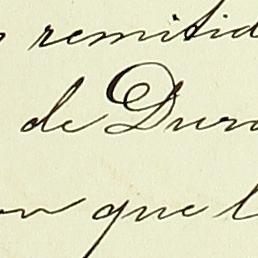 remitid
de Dura
que l